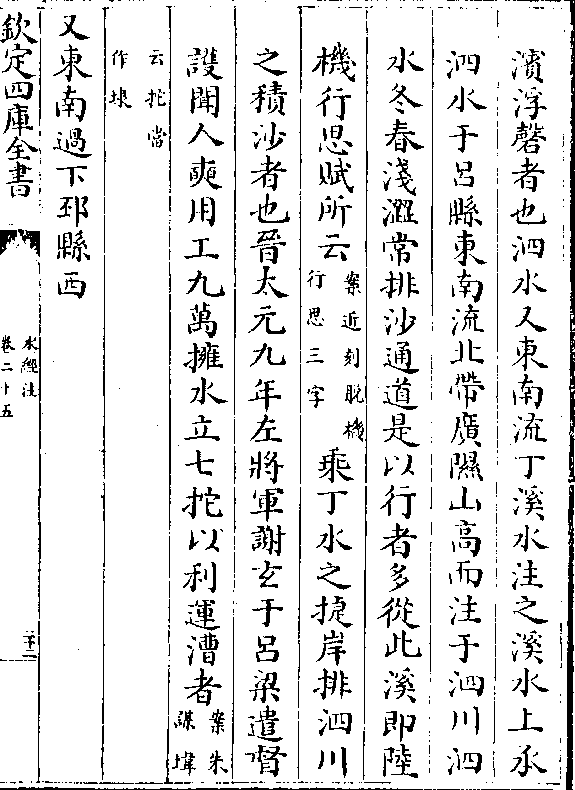 濱浮磬者也泗水又東南流丁溪水注之溪水上承
泗水于呂縣東南流北帶廣隰山高而注于泗川泗
水冬春淺澀常排沙通道是以行者多從此溪即陸
機行思賦所云案近刻脫機行思三字乘丁水之捷岸排泗川
之積沙者也晉太元九年左將軍謝玄于呂梁遣督
護聞人奭用工九萬擁水立七拕以利運漕者案朱謀㙔
云拕當作埭
又東南過下邳縣西
欽定四庫全書
水經注
卷二十五
二十二